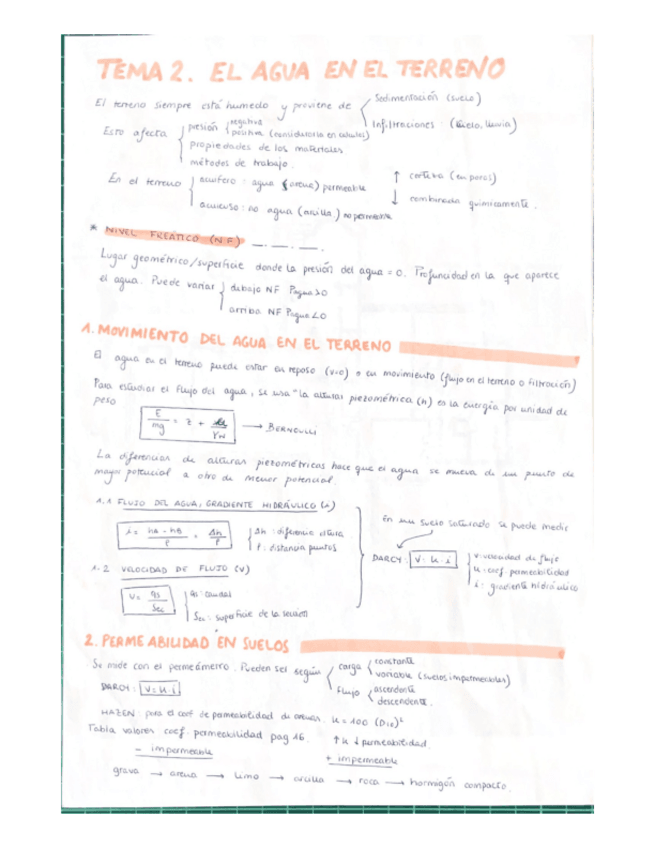 TEMA 2. EL AGUA EN EL TERRENO
El terreno siempre está humedo y proviene de
Sedimentación (suelo)
Infiltraciones (hielo, lluvia)
Esto afecta
presión
negativa
positiva (considerarla en calculos)
propiedades de los materiales
métodos de trabajo.
En el terreno
acuifero: agua (arena) permeable
acuicuso: no agua (arcilla) no permeable
↑ corteza (en poros)
↓ combinada quimicamente.
* NIVEL FREÁTICO (N.F)
Lugar geométrico/superficie donde la presión del agua = 0. Profundidad en la que aparece
el agua. Puede variar
debajo NF Pagua>0
arriba NF Pagua<0
1. MOVIMIENTO DEL AGUA EN EL TERRENO
El agua en el terreno puede estar en reposo (v=0) o en movimiento (flujo en el terreno o filtración)
Para estudiar el flujo del agua, se usa "la altura piezométrica (h) es la energía por unidad de
peso
E/mg = z + /γw → BERNOULLI
La diferencia de alturas piezométricas hace que el agua se mueva de un punto de
mayor potencial a otro de menor potencial.
1.1 FLUJO DEL AGUA, GRADIENTE HIDRÁULICO (i)
i = hA - hB / l = Δh / l
Δh: diferencia altura
l: distancia puntos
En un suelo saturado se puede medir
DARCY: V = k · i
v: velocidad de flujo
k: coef. permeabilidad
i: gradiente hidráulico
1.2 VELOCIDAD DE FLUJO (V)
V = qs / Sec
qs: caudal
Sec: superficie de la sección
2. PERMEABILIDAD EN SUELOS
Se mide con el permeámetro. Pueden ser según
carga
constante
variable (suelos impermeables)
flujo
ascendente
descendente.
DARCY: V = k · i
HAZEN: para el coef de permeabilidad de arenas. k = 100 (D10)²
Tabla valores coef. permeabilidad pag 16.
↑k ↓ permeabilidad.
- impermeable
+ impermeable
grava → arena → Limo → arcilla → roca → hormigón compacto.